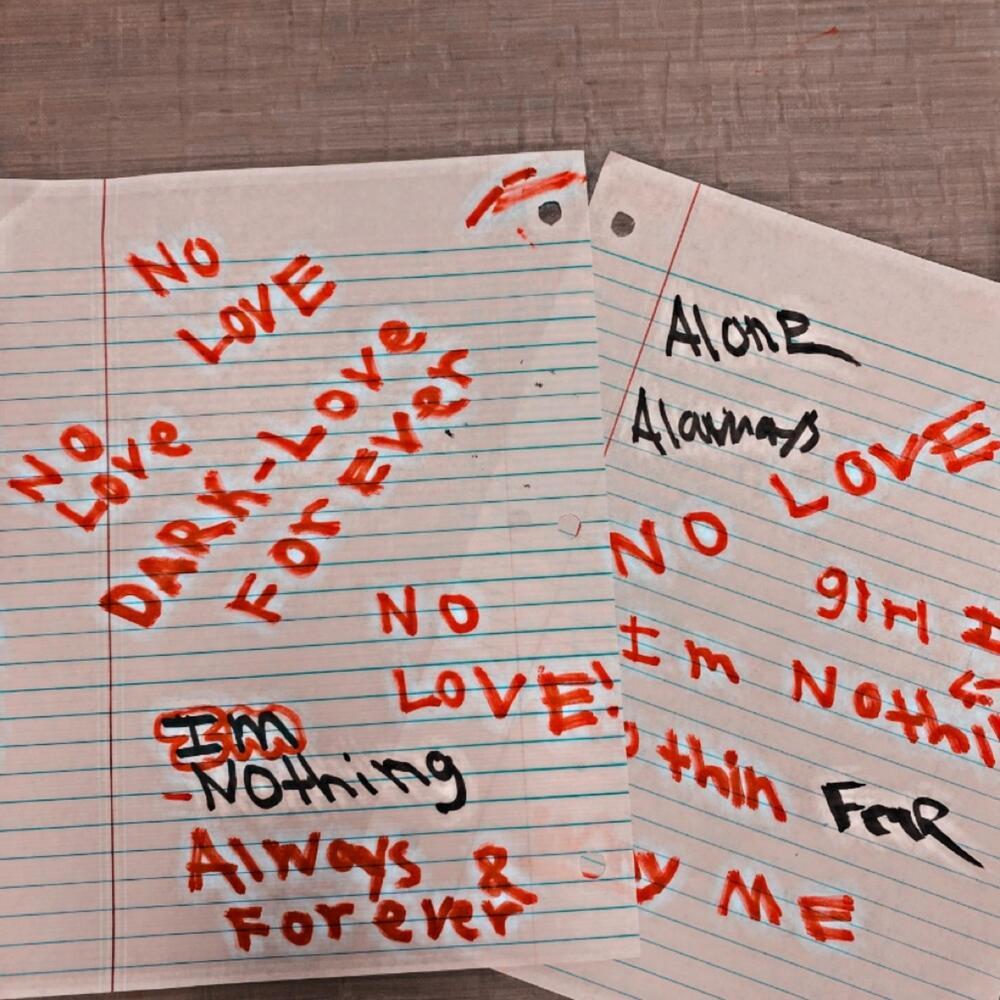 NO
LOVE
NO
Love
DARK-Love
FOR Ever
NO
LOVE!
Im
-Nothing
Always &
Forever
Alone
Alawnays
NO LOVE
girl I
Im Nothi
thin Fear
y ME